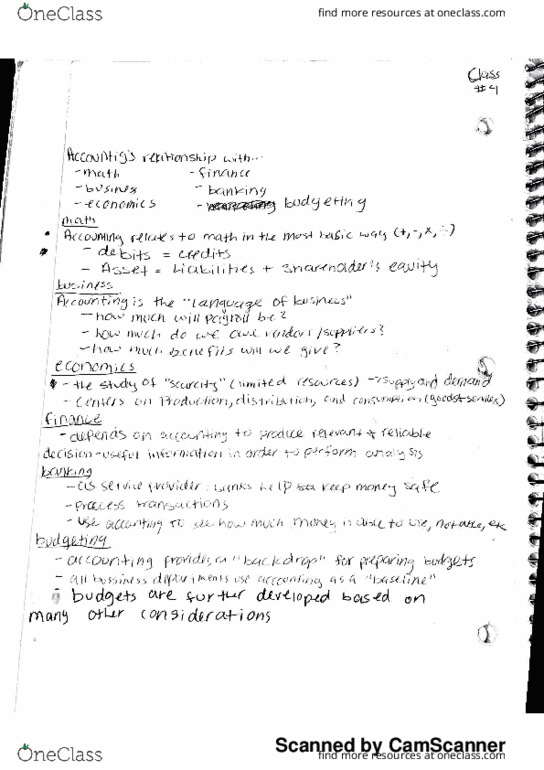 OneClass
find more resources at oneclass.com
Class
#4
Accountig's relationship with...
-math -finance
-busines -banking
-economics - budgeting
math
Accounting relates to math in the most basic way (+,-,x,÷)
- debits = credits
- Asset = Liabilities + Shareholder's equity
business
Accounting is the "language of business"
-how much will payroll be?
-how much do we owe vendors/suppliers?
-how much benefits will we give?
economics
- the study of "scarcity" (limited resources) → supply and demand
- centers on Production, distribution, and consumption (goods+services)
finance
-depends on accounting to produce relevant + reliable
decision-useful information in order to perform analysis
banking
-as service provider: banks help to keep money safe
-process transactions
-use accounting to see how much money is able to use, not able, etc
budgeting
-accounting provides a "backdrop" for preparing budgets
-all bussiness departments use accounting as a "baseline"
budgets are further developed based on
many other considerations
Scanned by CamScanner
OneClass
find more resources at oneclass.com